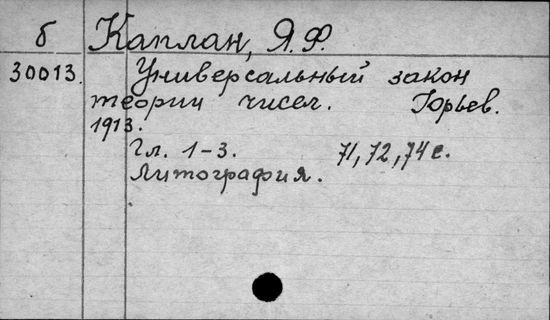 б Каплан, Я.Ф.
30013. Универсальный закон
теории чисел. Юрьев.
1913.
Гл. 1-3. 71, 72, 74 с.
Литография.